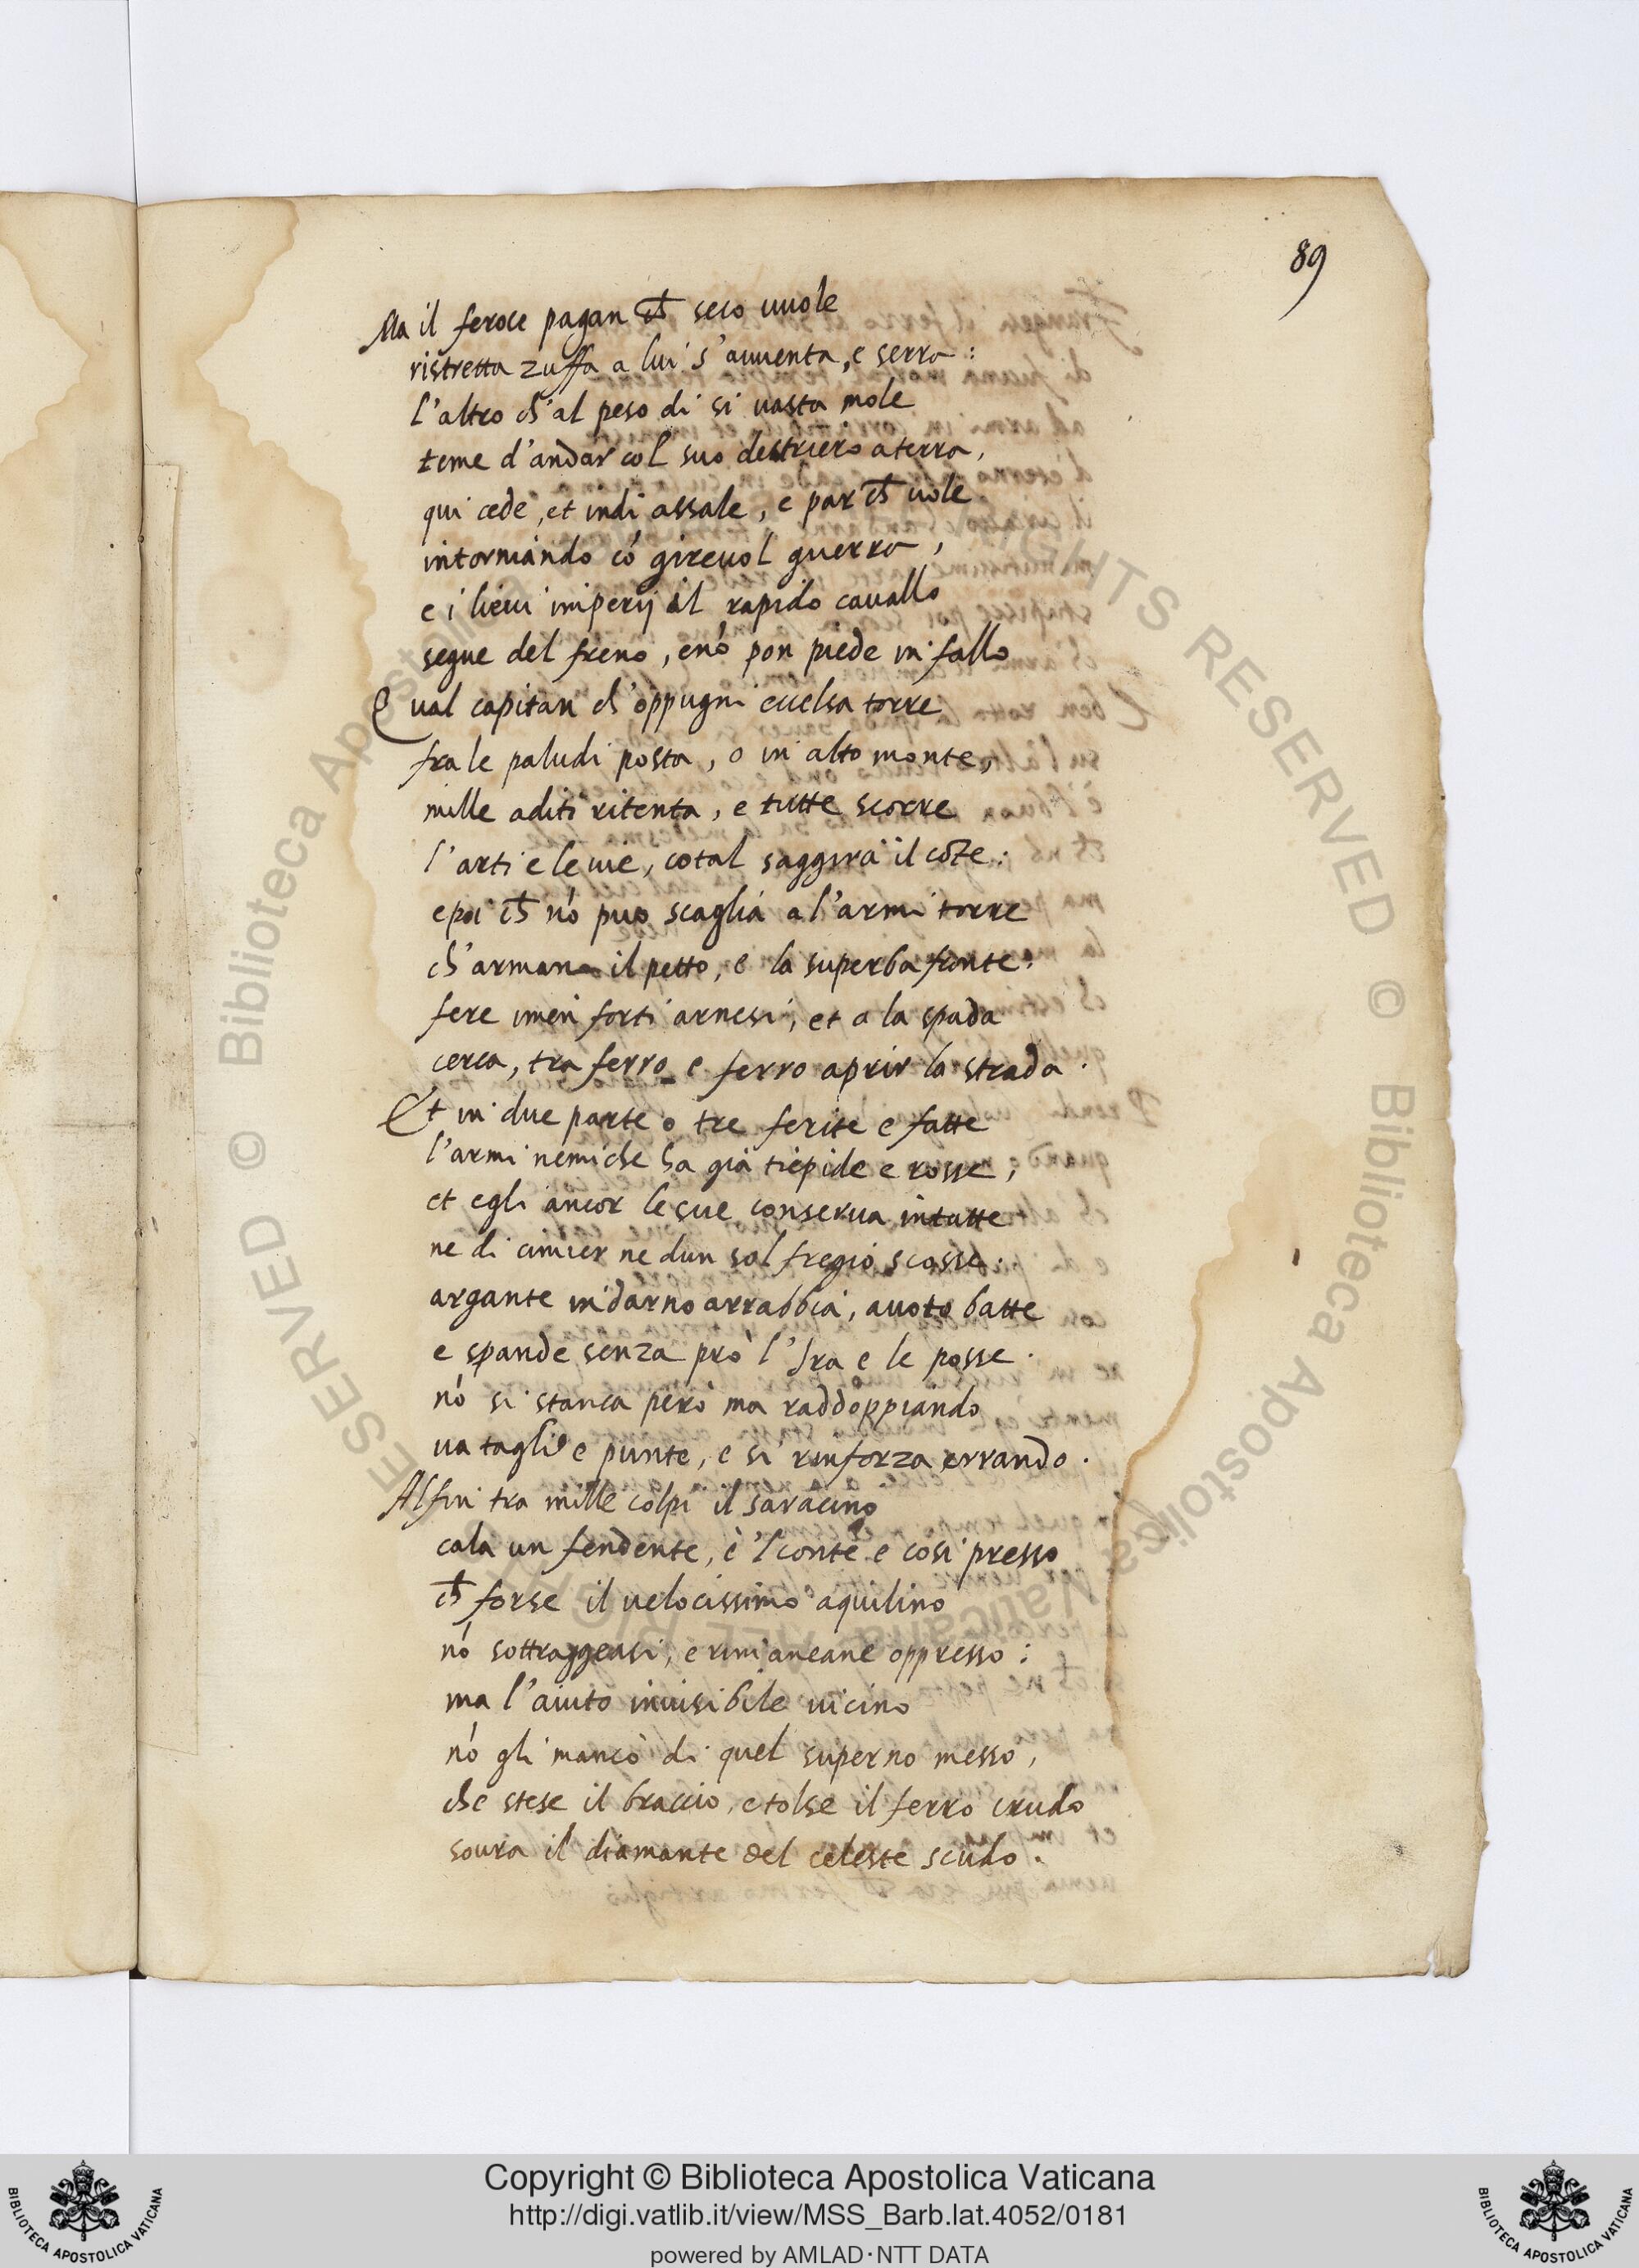 89
Ma il feroce pagan ch̄ seco vuole
ristretta zuffa a lui s'auuenta, e serra:
l'altro ch'al peso di si uasta mole
teme d'andar col suo destriero a terra,
qui cede, et indi assale, e par ch̄ uole
intorniando có gireuol guerra,
e i lieui imperij il rapido cauallo
segue del freno, e nó pon piede in fallo
Qual capitan ch'oppugni eccelsa torre
fra le paludi posta, o in alto monte,
mille aditi ritenta, e tutte scorre
l'arti e le uie, cotal saggira il cōte:
e poi ch̄ nó puo scaglia a l'armi torre
ch'armano il petto, e la superba fronte:
fere i men forti arnesi, et a la spada
cerca, tra ferro e ferro aprir la strada.
Et in due parte o tre ferite e fatte
l'armi nemiche ha già tiepide e rosse,
et egli ancor le sue conserua intatte
ne di cimier ne dun sol fregio scosse:
argante indarno arrabbia, a uoto batte
e spande senza prò l'Ira e le posse.
nó si stanca però ma raddoppiando
ua tagli e punte, e si rinforza errando.
Alfin tra mille colpi il saracino
cala un fendente, è 'l conte e cosi presso
ch̄ forse il uelocissimo aquilino
nó sottraggeasi, e rimaneane oppresso:
ma l'aiuto inuisibile uicino
nó gli mancò di quel superno messo,
che stese il braccio, e tolse il ferro crudo
soura il diamante del celeste scudo.
© Biblioteca Apostolica Vaticana ALL RIGHTS RESERVED
Copyright © Biblioteca Apostolica Vaticana
http://digi.vatlib.it/view/MSS_Barb.lat.4052/0181
powered by AMLAD·NTT DATA
BIBLIOTECA APOSTOLICA VATICANA
BIBLIOTECA APOSTOLICA VATICANA